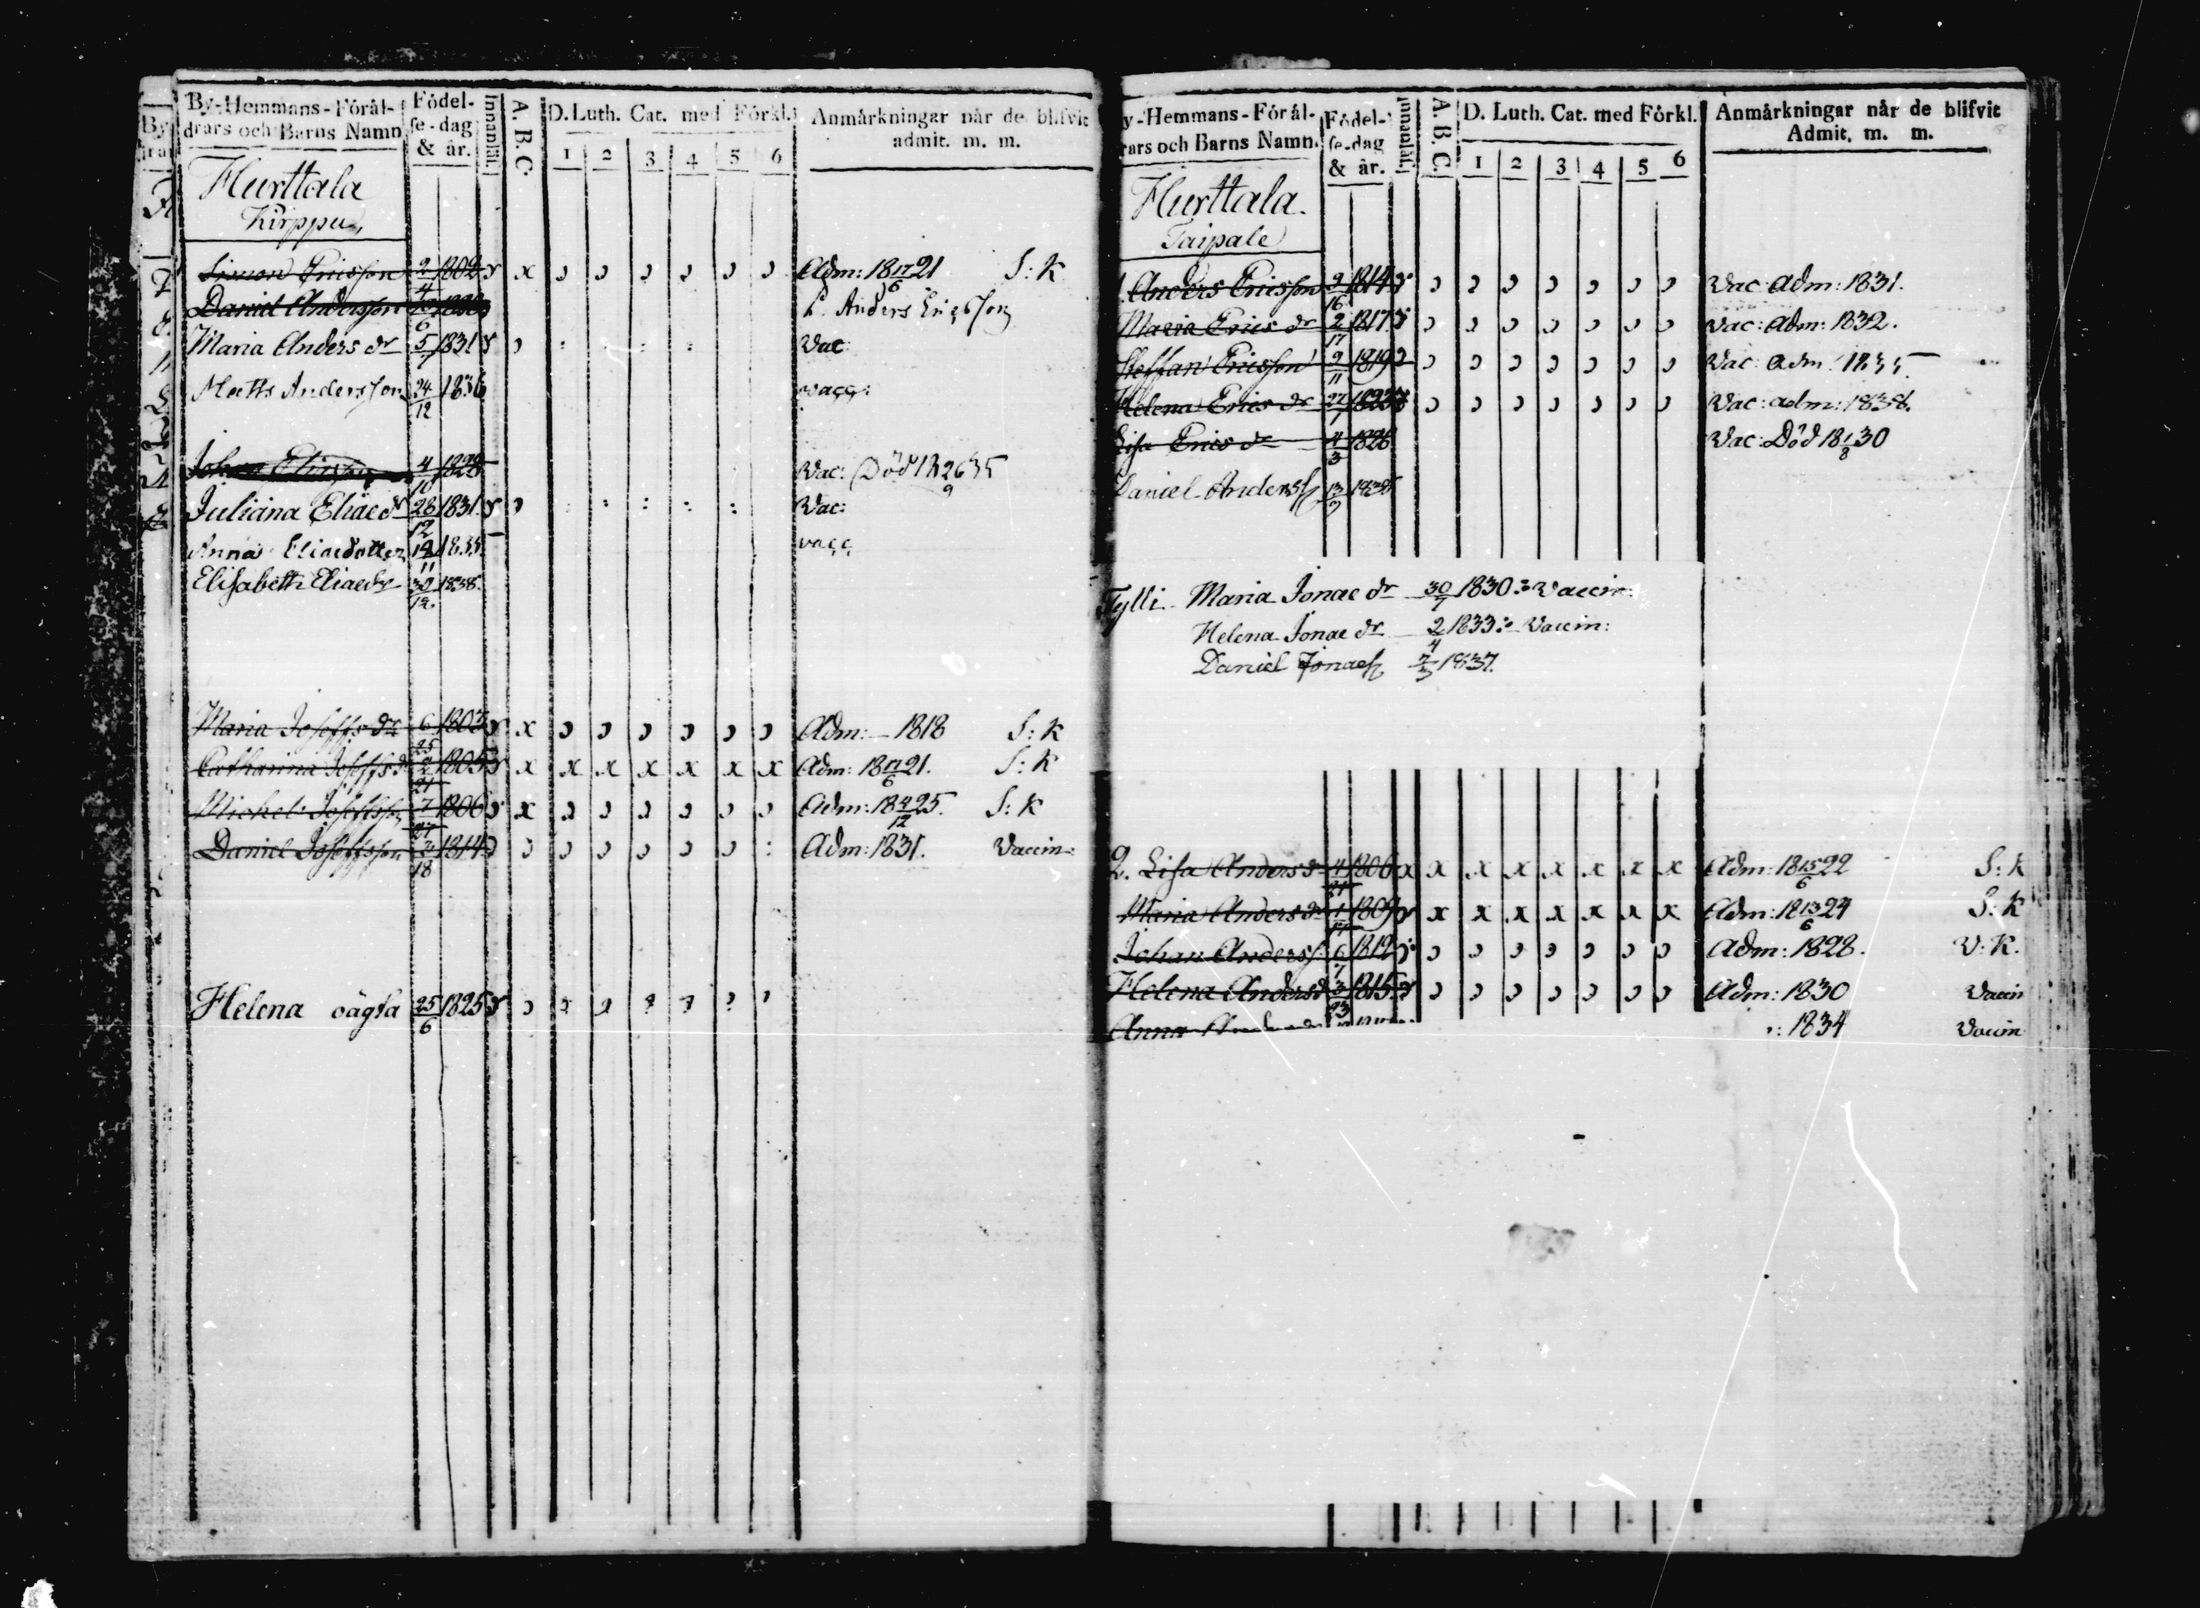 By-Hemmans-Förål-
drars och Barns Namn
Födel-
se-dag
& år.
Innanläs.
A. B. C.
D. Luth. Cat. med Förkl.
1 2 3 4 5 6
Anmärkningar når de blifvit
admit. m. m.
Hurttala
Kirppu
Simon Ericsson 2/4 1802 x Adm: 18 17/6 21 S: K
Daniel Andersson
h. Anders Ericsson
Maria Anders dr 5/7 1831 Vac:
Matts Andersson 24/12 1836 vacc:
Johan Eliasson 4/10 1828 Vac: Död 18 26/9 35
Juliana Eliae dr 28/12 1831 Vac:
Anna Eliaedotter 12/11 1835 vacc
Elisabeth Eliaedr 30/12 1838.
Maria Josephs dr 6/25 1803 x Adm: – 1818 S: K
Catharina Josephs dr 2/21 1805 x x x x x x x Adm: 18 17/6 21. S: K
Michel Josephsson 7/27 1806 x Adm: 18 4/12 25. S: K
Daniel Josephsson 2/18 1814 Adm: 1831. Vaccin:
Helena oägta 25/6 1825
y-Hemmans-Förål-
rars och Barns Namn.
Födel-
se-dag
& år.
Innanläs.
A. B. C.
D. Luth. Cat. med Förkl.
1 2 3 4 5 6
Anmärkningar når de blifvit
Admit. m. m.
Hurttala.
Taipale
1. Anders Ericsson 9/16 1814 Vac: Adm: 1831.
Maria Erics dr 2/17 1817 Vac: Adm: 1832.
Steffan Ericsson 9/11 1819 Vac: Adm: 1835
Helena Erics dr 27/7 1822 Vac: adm: 1838.
Lisa Erics dr 4/3 1826 Vac: Död 18 1/8 30
Daniel Anderss 13/9 1838
Tylli Maria Jonae dr 30/7 1830 Vaccin:
Helena Jonae dr 2/4 1833 Vaccin:
Daniel Jonaes 7/3 1837.
2. Lisa Anders dr 4/21 1806 x x x x x x x x Adm: 18 15/6 22 S: K
Maria Anders dr 1/17 1809 x x x x x x x Adm: 18 13/6 24 S: K
Johan Anderss 6/7 1812 Adm: 1828. V: K.
Helena Anders dr 3/23 1815 Adm: 1830 Vaccin
Anna : 1834 Vaccin